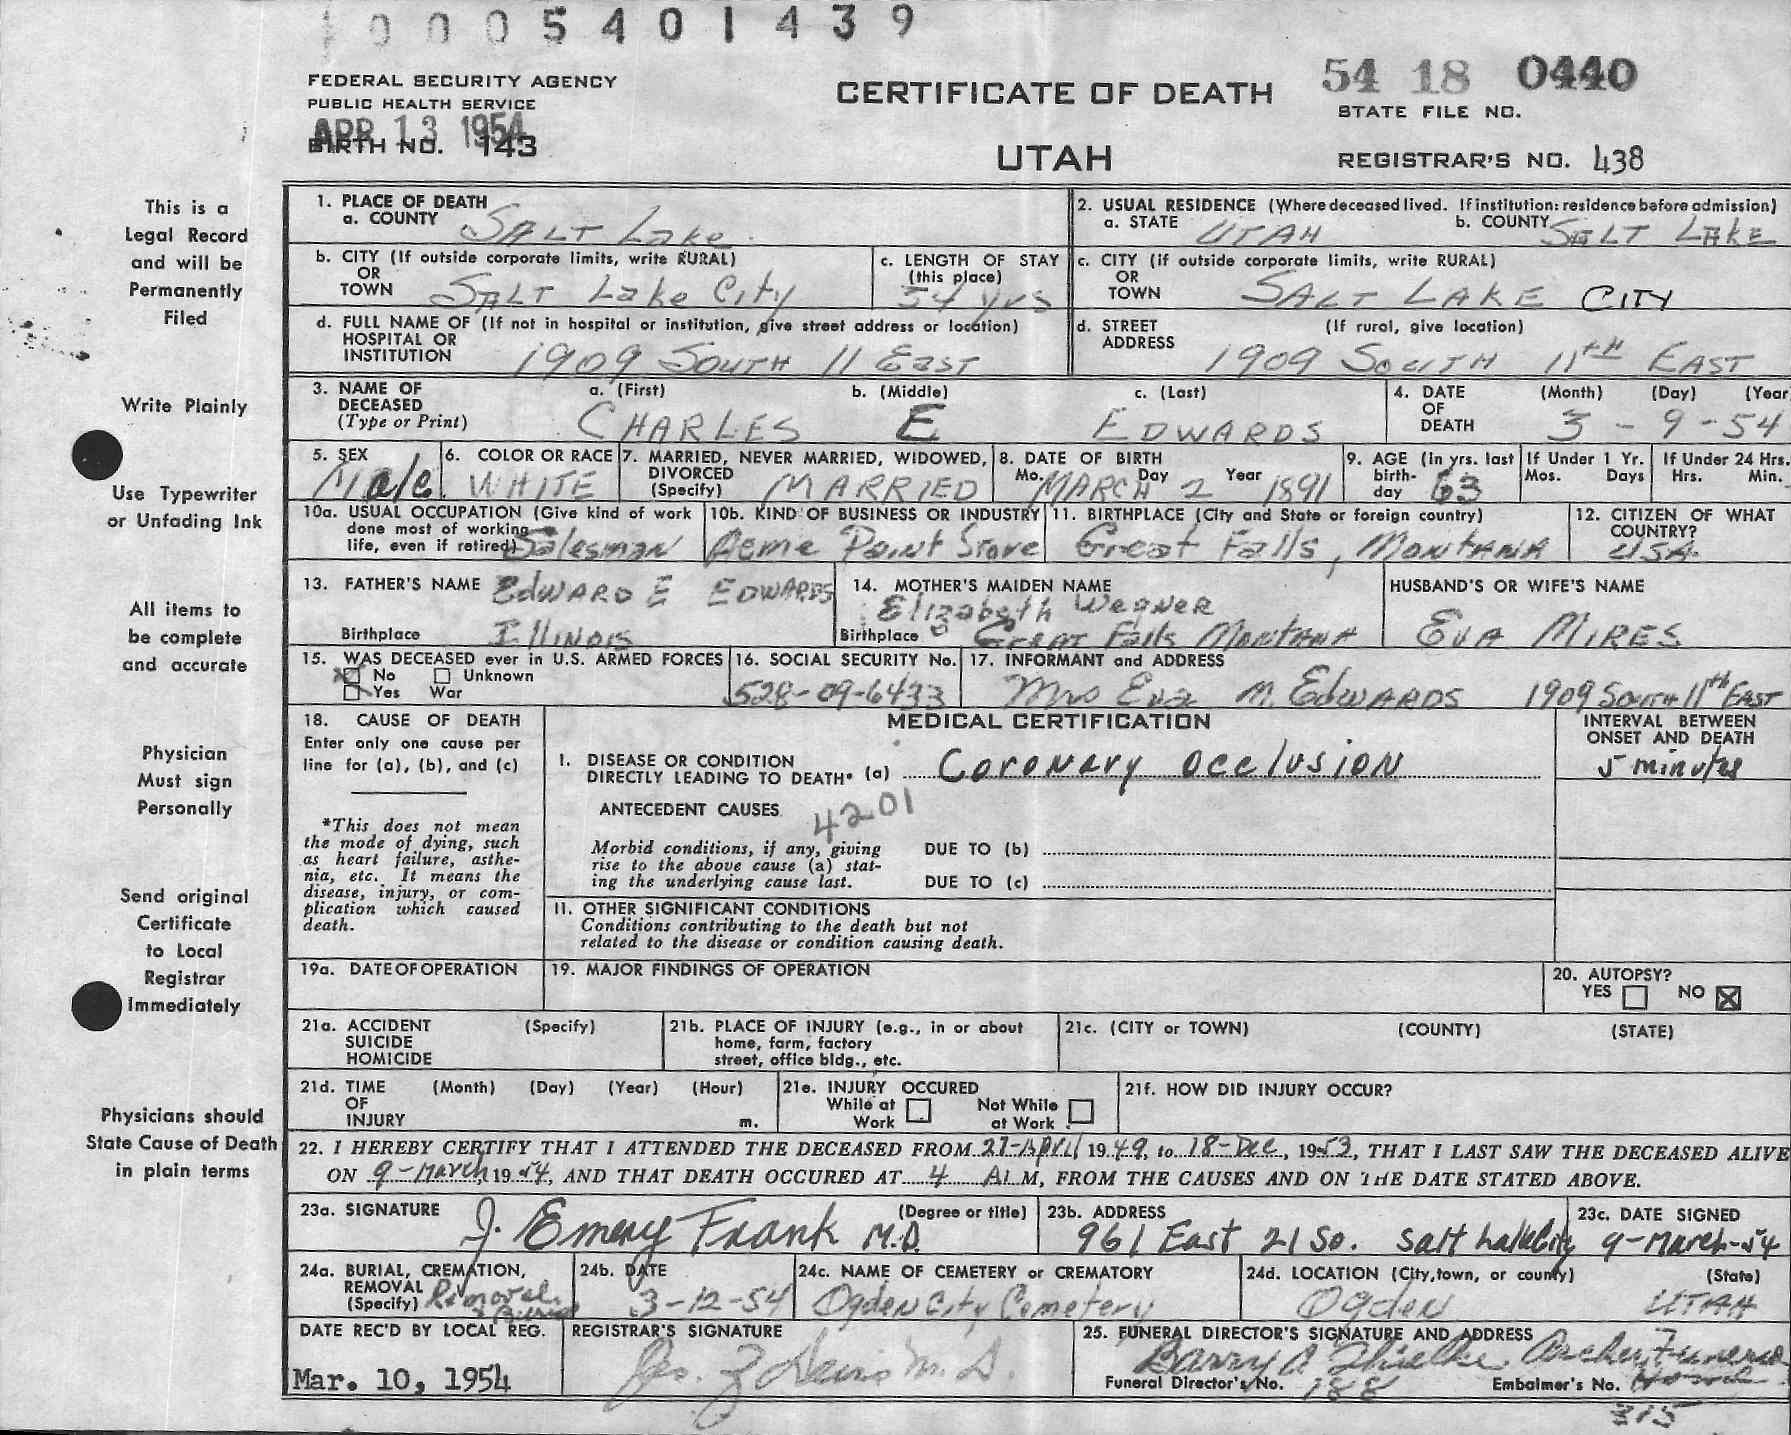 0005401439
FEDERAL SECURITY AGENCY
PUBLIC HEALTH SERVICE
APR 13 1954
BIRTH NO. 143
CERTIFICATE OF DEATH
UTAH
54 18 0440
STATE FILE NO.
REGISTRAR'S NO. 438
This is a
Legal Record
and will be
Permanently
Filed
Write Plainly
Use Typewriter
or Unfading Ink
All items to
be complete
and accurate
Physician
Must sign
Personally
Send original
Certificate
to Local
Registrar
Immediately
Physicians should
State Cause of Death
in plain terms
1. PLACE OF DEATH
a. COUNTY SALT Lake
2. USUAL RESIDENCE (Where deceased lived. If institution: residence before admission)
a. STATE UTAH b. COUNTY SALT LAKE
b. CITY (If outside corporate limits, write RURAL)
OR
TOWN SALT Lake City
c. LENGTH OF STAY
(this place)
54 yrs
c. CITY (if outside corporate limits, write RURAL)
OR
TOWN SALT LAKE CITY
d. FULL NAME OF (If not in hospital or institution, give street address or location)
HOSPITAL OR
INSTITUTION 1909 SOUTH 11 EAST
d. STREET (If rural, give location)
ADDRESS 1909 SOUTH 11TH EAST
3. NAME OF DECEASED a. (First) b. (Middle) c. (Last)
(Type or Print) CHARLES E EDWARDS
4. DATE OF DEATH (Month) (Day) (Year
3 - 9 - 54
5. SEX
Male
6. COLOR OR RACE
WHITE
7. MARRIED, NEVER MARRIED, WIDOWED,
DIVORCED
(Specify) MARRIED
8. DATE OF BIRTH
Mo. Day Year
MARCH 2 1891
9. AGE (In yrs. last
birth-
day 63
If Under 1 Yr.
Mos. Days
If Under 24 Hrs.
Hrs. Min.
10a. USUAL OCCUPATION (Give kind of work
done most of working
life, even if retired) Salesman
10b. KIND OF BUSINESS OR INDUSTRY
Acme Paint Store
11. BIRTHPLACE (City and State or foreign country)
Great Falls, MONTANA
12. CITIZEN OF WHAT
COUNTRY?
USA
13. FATHER'S NAME EDWARD E EDWARDS
Birthplace ILLINOIS
14. MOTHER'S MAIDEN NAME
Elizabeth Wegner
Birthplace GREAT Falls MONTANA
HUSBAND'S OR WIFE'S NAME
EVA MIRES
15. WAS DECEASED ever in U.S. ARMED FORCES
No Unknown
Yes War
16. SOCIAL SECURITY No.
528-09-6433
17. INFORMANT and ADDRESS
Mrs Eva M. EDWARDS 1909 SOUTH 11th EAST
18. CAUSE OF DEATH
Enter only one cause per
line for (a), (b), and (c)
*This does not mean
the mode of dying, such
as heart failure, asthe-
nia, etc. It means the
disease, injury, or com-
plication which caused
death.
MEDICAL CERTIFICATION
INTERVAL BETWEEN
ONSET AND DEATH
I. DISEASE OR CONDITION
DIRECTLY LEADING TO DEATH* (a) Coronary occlusion
5 minutes
ANTECEDENT CAUSES
4201
Morbid conditions, if any, giving
rise to the above cause (a) stat-
ing the underlying cause last.
DUE TO (b)
DUE TO (c)
11. OTHER SIGNIFICANT CONDITIONS
Conditions contributing to the death but not
related to the disease or condition causing death.
19a. DATE OF OPERATION
19. MAJOR FINDINGS OF OPERATION
20. AUTOPSY?
YES NO
21a. ACCIDENT (Specify)
SUICIDE
HOMICIDE
21b. PLACE OF INJURY (e.g., in or about
home, farm, factory
street, office bldg., etc.
21c. (CITY or TOWN) (COUNTY) (STATE)
21d. TIME (Month) (Day) (Year) (Hour)
OF
INJURY m.
21e. INJURY OCCURED
While at Work
Not While at Work
21f. HOW DID INJURY OCCUR?
22. I HEREBY CERTIFY THAT I ATTENDED THE DECEASED FROM 27-April 1949 to 18-Dec, 1953, THAT I LAST SAW THE DECEASED ALIVE
ON 9-March, 1954, AND THAT DEATH OCCURED AT 4 A.M, FROM THE CAUSES AND ON THE DATE STATED ABOVE.
23a. SIGNATURE (Degree or title)
J. Emery Frank M.D.
23b. ADDRESS
961 East 21 So. Salt Lake City
23c. DATE SIGNED
9-March-54
24a. BURIAL, CREMATION,
REMOVAL
(Specify) Removal & Burial
24b. DATE
3-12-54
24c. NAME OF CEMETERY or CREMATORY
Ogden City Cemetery
24d. LOCATION (City, town, or county) (State)
Ogden UTAH
DATE REC'D BY LOCAL REG.
Mar. 10, 1954
REGISTRAR'S SIGNATURE
M.D.
25. FUNERAL DIRECTOR'S SIGNATURE AND ADDRESS
Barry A. Archer Funeral Home
Funeral Director's No. 188
Embalmer's No.
315